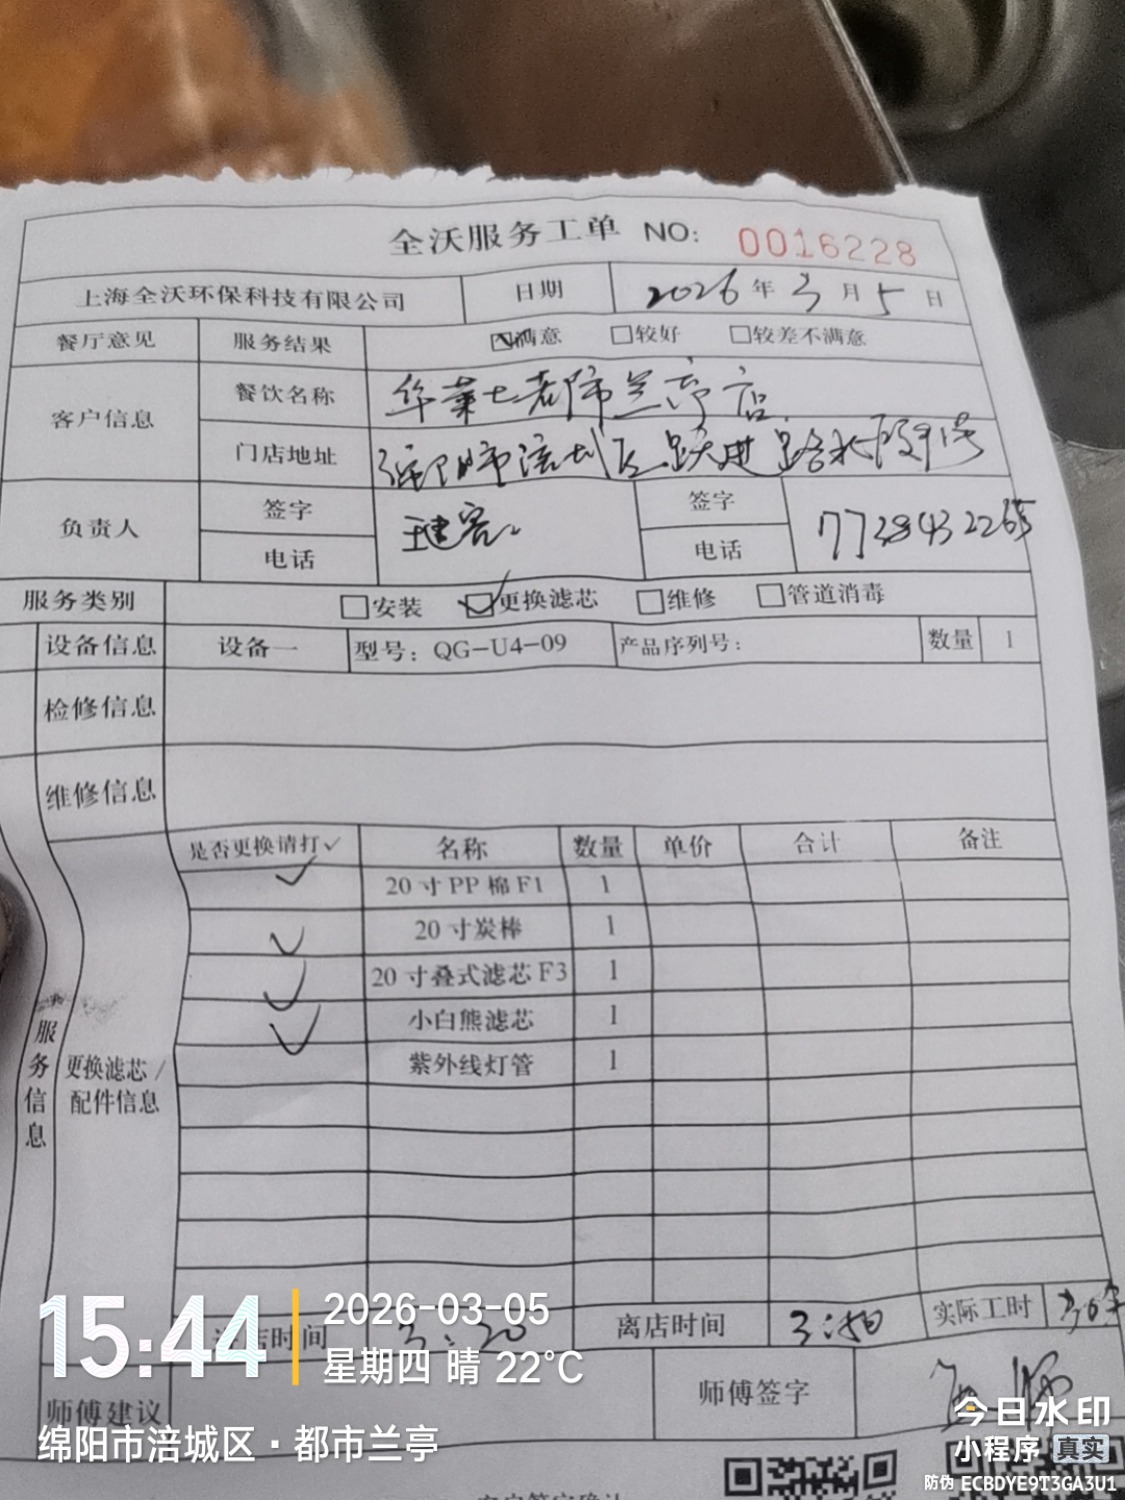 全沃服务工单 NO: 0016228
上海全沃环保科技有限公司 日期 2026年3月5日
餐厅意见 服务结果 满意 较好 较差不满意
客户信息 餐饮名称 华莱士都市兰亭店
门店地址 绵阳市涪城区跃进路北段
负责人 签字 签字
电话 电话
服务类别 安装 更换滤芯 维修 管道消毒
设备信息 设备一 型号：QG-U4-09 产品序列号： 数量 1
检修信息
维修信息
是否更换请打✓ 名称 数量 单价 合计 备注
✓ 20寸PP棉F1 1
✓ 20寸炭棒 1
✓ 20寸叠式滤芯F3 1
✓ 小白熊滤芯 1
紫外线灯管 1
服务信息
更换滤芯/
配件信息
店时间 3:20 离店时间 实际工时
师傅建议 师傅签字
15:44
2026-03-05
星期四 晴 22°C
绵阳市涪城区·都市兰亭
今日水印
小程序 真实
防伪 ECBDYE9T3GA3U1